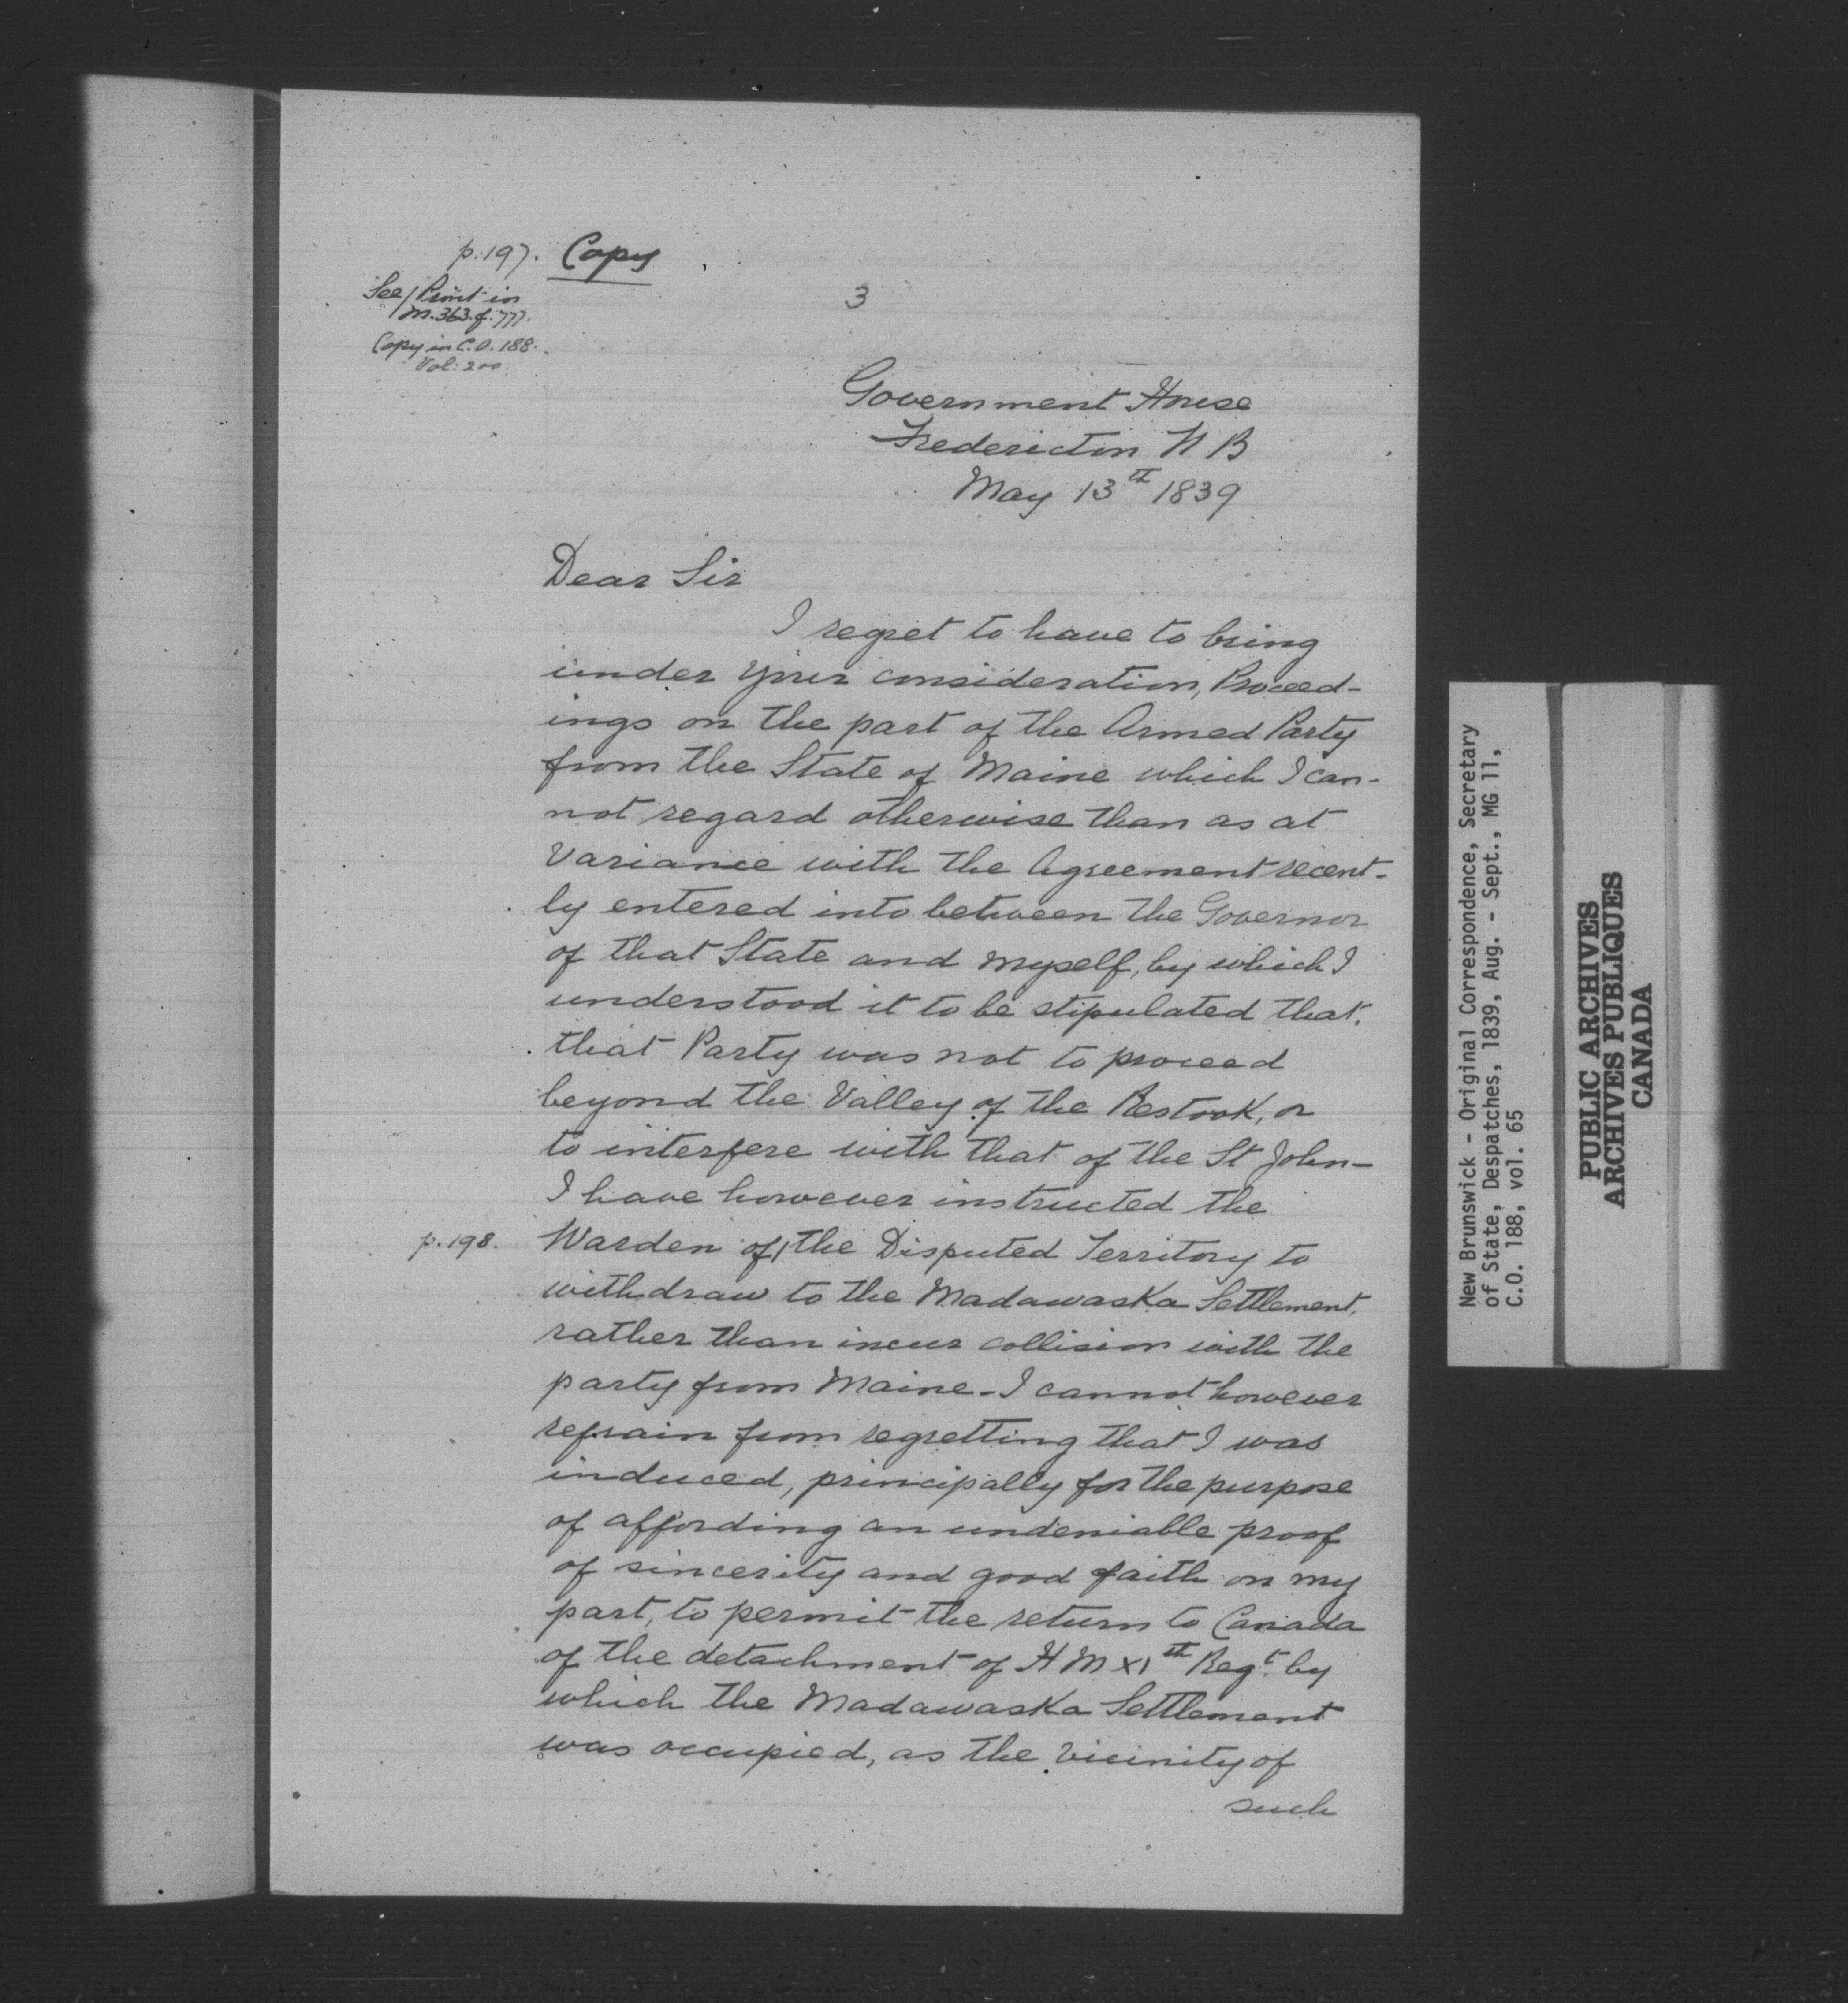 p.197. Copy
See/Print in
m.363.f.777.
Copy in C.O.188.
Vol: 200.
3
Government House
Fredericton N B
May 13th 1839
Dear Sir
I regret to have to bring
under your consideration, Proceed-
ings on the part of the Armed Party
from the State of Maine which I can-
not regard otherwise than as at
Variance with the Agreement recent-
ly entered into between the Governor
of that State and myself, by which I
understood it to be stipulated that.
that Party was not to proceed
beyond the Valley of the Restook, or
to interfere with that of the St John-
I have however instructed the
p.198. Warden of/the Disputed Territory to
withdraw to the Madawaska Settlement,
rather than incur collision with the
party from Maine-I cannot however
refrain from regretting that I was
induced, principally for the purpose
of affording an undeniable proof
of sincerity and good faith on my
part, to permit the return to Canada
of the detachment of H M XIth Regt. by
which the Madawaska Settlement
was occupied, as the vicinity of
such
New Brunswick - Original Correspondence, Secretary
of State, Despatches, 1839, Aug. - Sept., MG 11,
C.O. 188, vol. 65
PUBLIC ARCHIVES
ARCHIVES PUBLIQUES
CANADA